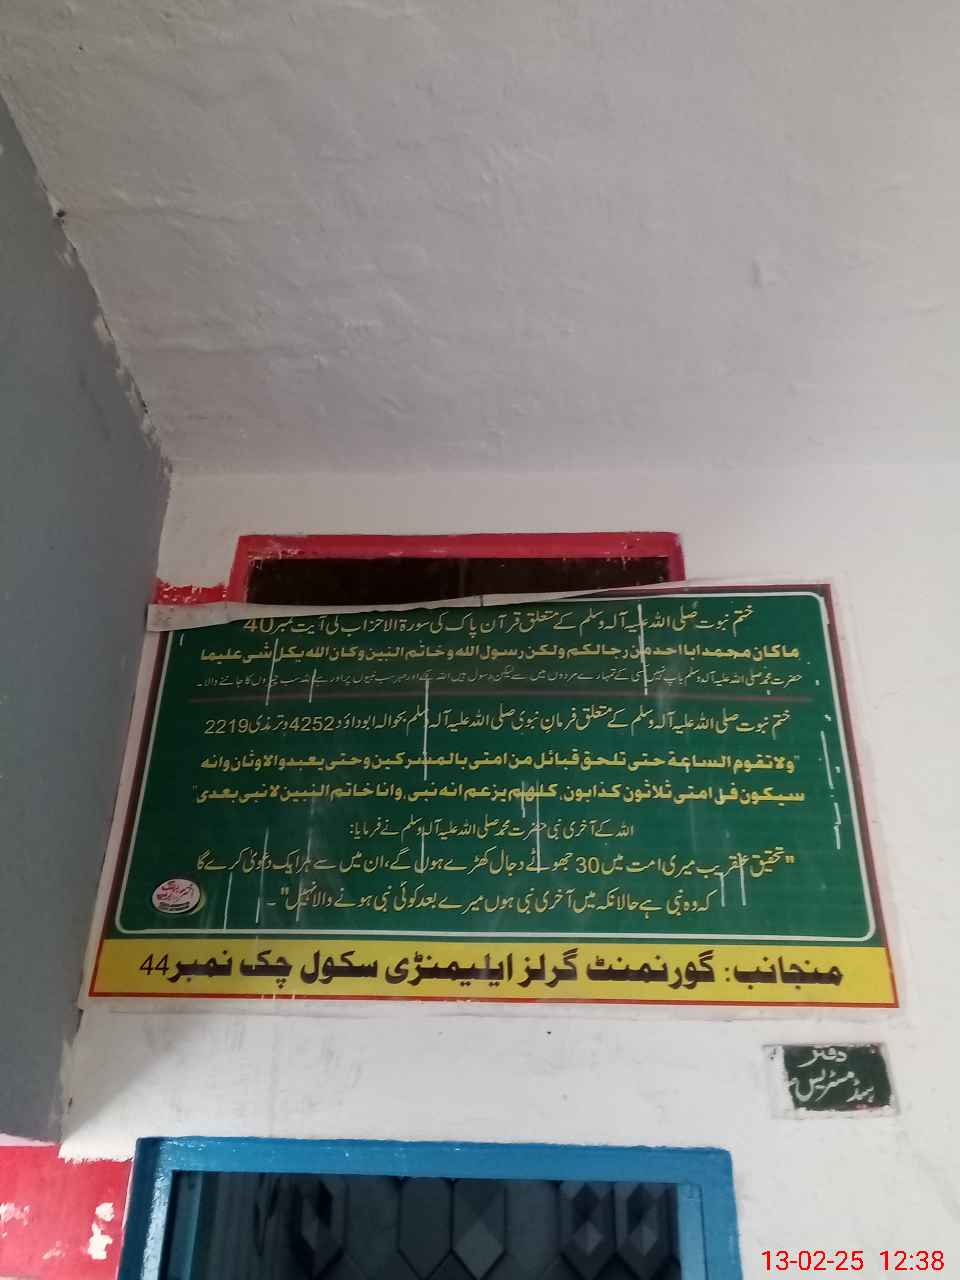 ختم نبوت صلی اللہ علیہ آلہ وسلم کے متعلق قرآن پاک کی سورۃ الاحزاب کی آیت نمبر 40
ماکان محمد ابا احد من رجالکم ولکن رسول اللہ وخاتم النبین وکان اللہ بکل شی علیما
حضرت محمد صلی اللہ علیہ آلہ وسلم باپ نہیں کسی کے تمہارے مردوں میں سے لیکن رسول ہیں اللہ کے اور مہر سب نبیوں پر اور ہے اللہ سب چیزوں کا جاننے والا۔
ختم نبوت صلی اللہ علیہ آلہ وسلم کے متعلق فرمان نبوی صلی اللہ علیہ آلہ وسلم بحوالہ ابوداؤد 4252 و ترمذی 2219
"ولا تقوم الساعة حتی تلحق قبائل من امتی بالمشرکین وحتی یعبدو الاوثان وانه
سیکون فی امتی ثلاثون کذابون، کلهم یزعم انه نبی، وانا خاتم النبیین لا نبی بعدی"
اللہ کے آخری نبی حضرت محمد صلی اللہ علیہ آلہ وسلم نے فرمایا:
"تحقیق عنقریب میری امت میں 30 جھوٹے دجال کھڑے ہوں گے، ان میں سے ہر ایک دعویٰ کرے گا
کہ وہ نبی ہے حالانکہ میں آخری نبی ہوں میرے بعد کوئی نبی ہونے والا نہیں"۔
منجانب: گورنمنٹ گرلز ایلیمنڑی سکول چک نمبر 44
دفتر
ہیڈ مسٹریس
13-02-25 12:38